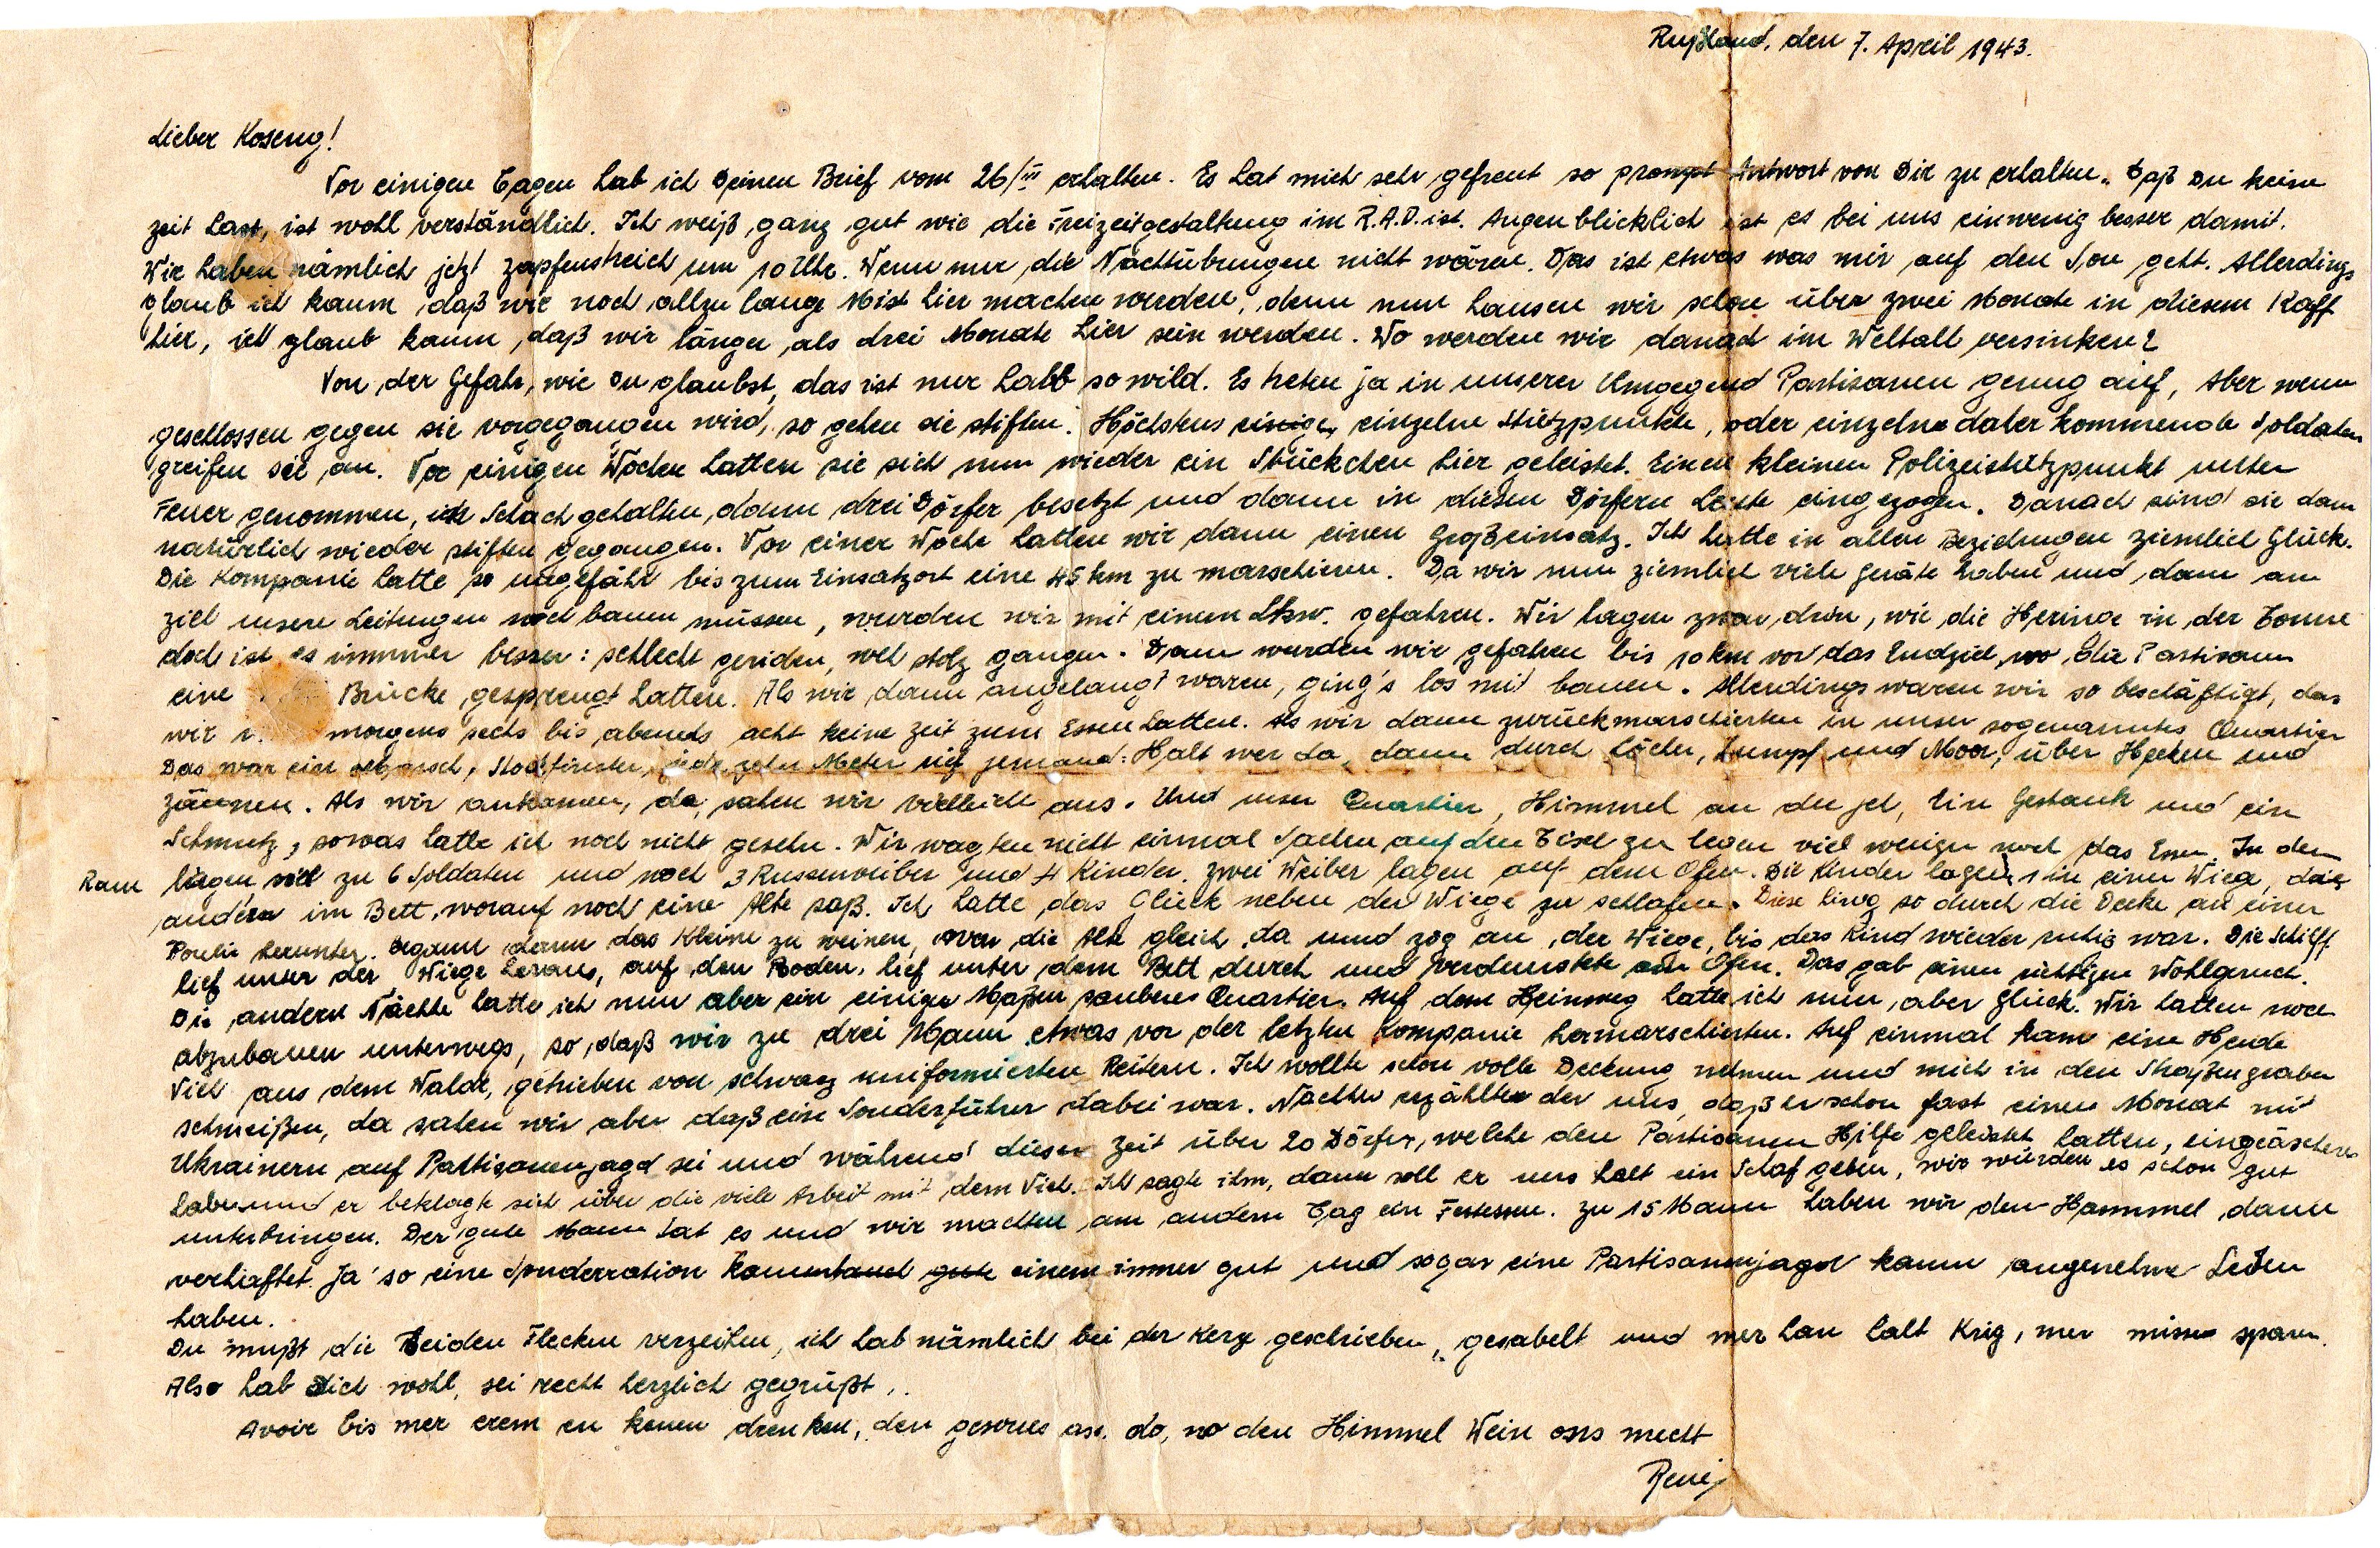 Rußland, den 7. April 1943.
Lieber Koseng!
Vor einigen Tagen hab ich Deinen Brief vom 26/III erhalten. Es hat mich sehr gefreut so prompt Antwort von Dir zu erhalten. Daß Du keine
zeit hast, ist wohl verständlich. Ich weiß ganz gut wie die Freizeitgestaltung im R.A.D. ist. Augenblicklich ist es bei uns einwenig besser damit.
Wir haben nämlich jetzt Zapfenstreich um 10 Uhr. Wenn nur die Nachtübungen nicht wären. Das ist etwas was mir auf den Son geht. Allerdings
glaub ich kaum, daß wir noch allzu lange Mist hier machen werden, denn nun hausen wir schon über zwei Monate in diesem Kaff
hier, ich glaub kaum, daß wir länger als drei Monate hier sein werden. Wo werden wir danach im Weltall versinken?
Von der Gefahr, wie Du glaubst, das ist nur halb so wild. Es treten ja in unserer Umgegend Partisanen genug auf, Aber wenn
geschlossen gegen sie vorgegangen wird, so gehen sie stiften. Höchstens einige, einzelne Stützpunkte, oder einzelne daher kommende Soldaten
greifen sie an. Vor einigen Wochen hatten sie sich nun wieder ein Stückchen hier geleistet. Einen kleinen Polizeistützpunkt unter
Feuer genommen, in Schach gehalten, dann drei Dörfer besetzt und dann in diesen Dörfern Leute eingezogen. Danach sind sie dann
natürlich wieder stiften gegangen. Vor einer Woche hatten wir dann einen Großeinsatz. Ich hatte in allen Beziehungen ziemlich Glück.
Die Kompanie hatte so ungefähr bis zum Einsatzort eine 45 km zu marschieren. Da wir nun ziemlich viele Geräte haben und dann am
Ziel unsere Leitungen noch bauen müssen, wurden wir mit einem Lkw. gefahren. Wir lagen zwar drin, wie die Heringe in der Tonne
doch ist es immer besser: schlecht geriden, wel stolz gangen. Dann wurden wir gefahren bis 10 km vor das Endziel, wo die Partisanen
eine Brücke gesprengt hatten. Als wir dann angelangt waren, ging's los mit bauen. Allerdings waren wir so beschäftigt, das
wir morgens sechs bis abends acht keine Zeit zum Essen hatten. Als wir dann zurückmarschierten in unser sogenanntes Quartier
Das war ein Stockfinster, jede zehn Meter rief jemand: Halt wer da, dann durch Löcher, Sumpf und Moor, über Hecken und
zäunen. Als wir ankamen, da sahen wir vielleicht aus. Und unser Quartier, Himmel an die jel, Ein Gestank und ein
Schmutz, sowas hatte ich noch nicht gesehn. Wir wagten nicht einmal Sachen auf den Tisch zu legen viel weniger noch das Essen. In dem
Raum lagen wir zu 6 Soldaten und noch 3 Russenweiber und 4 Kinder. Zwei Weiber lagen auf dem Ofen. Die Kinder lagen, 1 in einer Wiege, die
andern im Bett, worauf noch eine Alte saß. Ich hatte das Glück neben der Wiege zu schlafen. Diese hing so durch die Decke an einer
herunter. begann dann das Kleine zu weinen, war die Alte gleich da und zog an der Wiege, bis das Kind wieder ruhig war. Die Schiff
lief unter der Wiege heraus, auf den Boden, lief unter dem Bett durch und verdunstete am Ofen. Das gab einen richtigen Wohlgeruch.
Die andern Nächte hatte ich nun aber ein einiger Maßen sauberes Quartier. Auf dem Heimweg hatte ich nun aber Glück. Wir hatten noch
abzubauen unterwegs, so daß wir zu drei Mann etwas vor der letzten Kompanie hermarschierten. Auf einmal kam eine Herde
Vieh aus dem Walde, getrieben von schwarz uniformierten Reitern. Ich wollte schon volle Deckung nehmen und mich in den Straßengraben
schmeißen, da sahen wir aber daß ein Sonderführer dabei war. Nachher erzählte der uns, daß er schon fast einen Monat mit
Ukrainern auf Partisanenjagd sei und während dieser Zeit über 20 Dörfer, welche den Partisanen Hilfe geleistet hatten, eingeäschert
haben und er beklagte sich über die viele Arbeit mit dem Vieh. Ich sagte ihm, dann soll er uns halt ein Schaf geben, wir würden es schon gut
unterbringen. Der gute Mann tat es und wir machten am andern Tag ein Festessen. Zu 15 Mann haben wir den Hammel dann
verhaftet. Ja so eine Sonderration einem immer gut und sogar eine Partisanenjagd kann angenehme Seiten
haben.
Du mußt die beiden Flecken verzeihen, ich hab nämlich bei der Kerze geschrieben, gesabelt und mer han halt Krig, mer misse sparen.
Also hab Dich wohl, sei recht herzlich gegrüßt..
Avoir bis mer erem en kenen drenken, den gesones ass. do, wo den Himmel Wein oss mecht
René